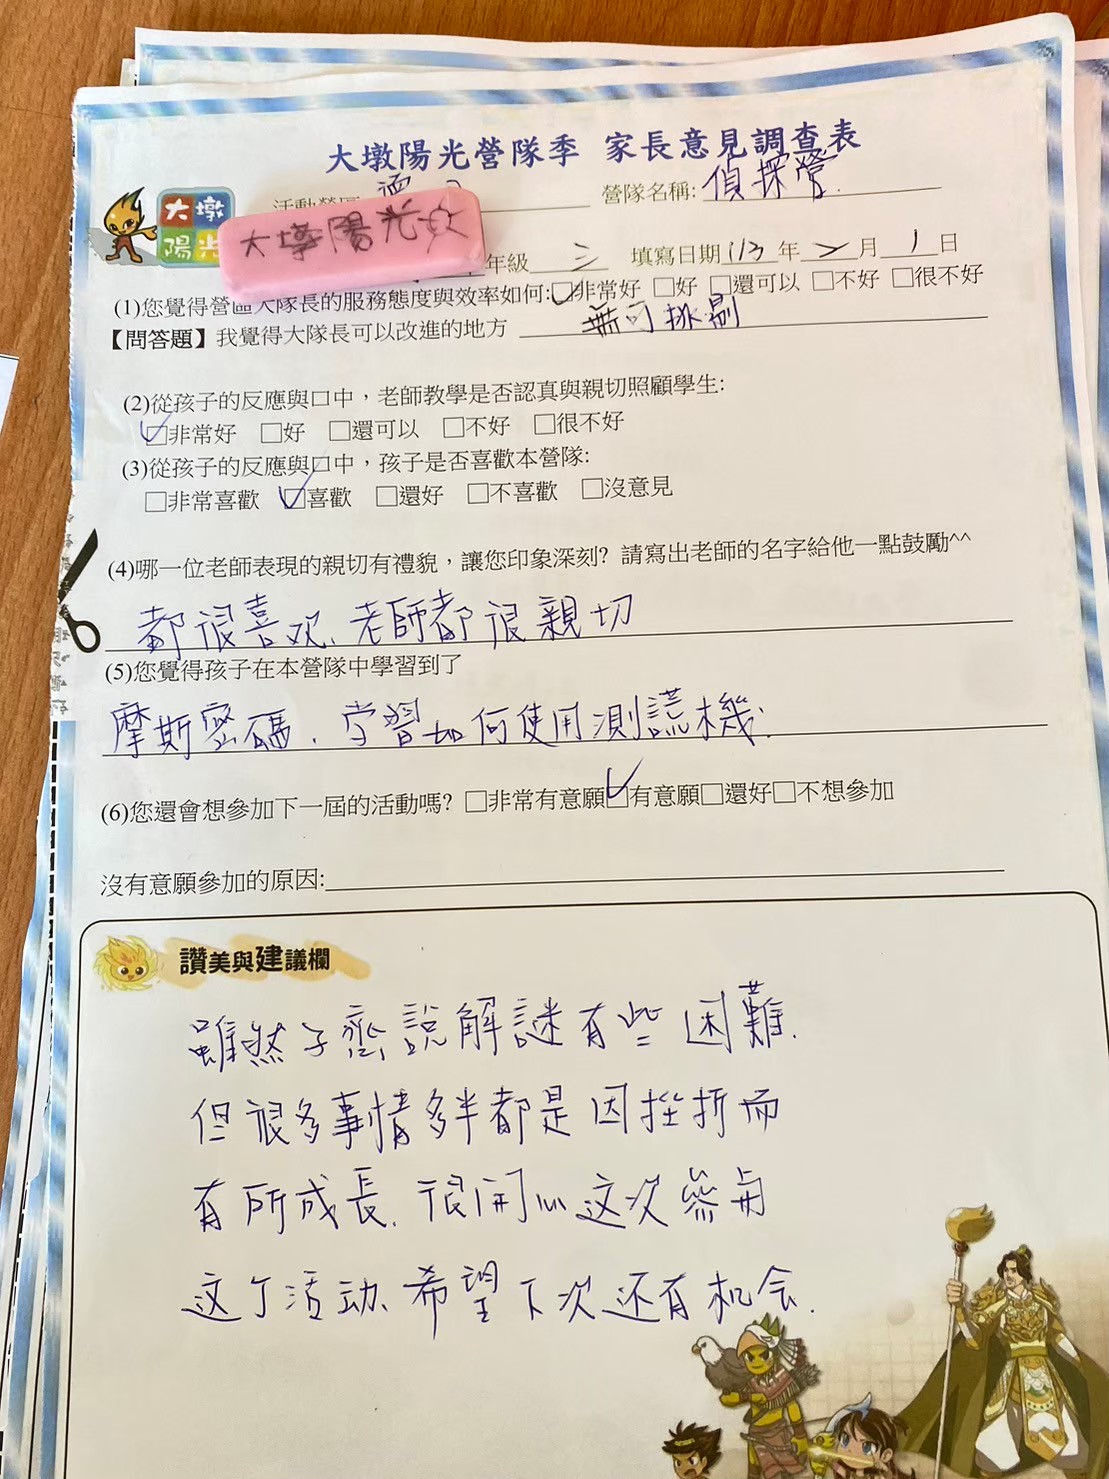 大墩陽光營隊季 家長意見調查表
營隊名稱:偵探營.
大墩
陽光
大墩陽光
年級 三 填寫日期113年2月1日
(1)您覺得營區大隊長的服務態度與效率如何:☑非常好 □好 □還可以 □不好 □很不好
【問答題】我覺得大隊長可以改進的地方 無可挑剔
(2)從孩子的反應與口中，老師教學是否認真與親切照顧學生:
☑非常好 □好 □還可以 □不好 □很不好
(3)從孩子的反應與口中，孩子是否喜歡本營隊:
□非常喜歡 ☑喜歡 □還好 □不喜歡 □沒意見
(4)哪一位老師表現的親切有禮貌，讓您印象深刻? 請寫出老師的名字給他一點鼓勵^^
都很喜欢、老師都很親切
(5)您覺得孩子在本營隊中學習到了
摩斯密碼、学習如何使用測謊機.
(6)您還會想參加下一屆的活動嗎? □非常有意願☑有意願□還好□不想參加
沒有意願參加的原因:
讚美與建議欄
雖然子齋說解謎有些困難.
但很多事情多半都是因挫折而
有所成長.很開心这次參与
这个活动、希望下次还有机会.